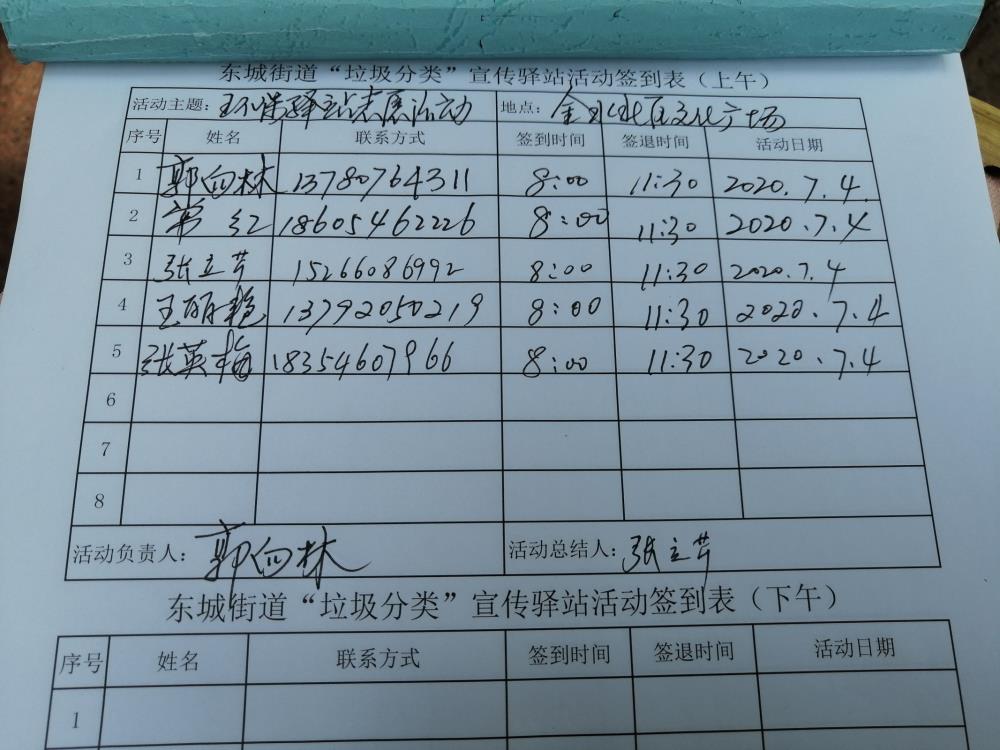 东城街道“垃圾分类”宣传驿站活动签到表（上午）
活动主题：环保驿站志愿活动 地点：金水社区文化广场
序号 姓名 联系方式 签到时间 签退时间 活动日期
1 郭向林 13780764311 8:00 11:30 2020.7.4.
2 常红 18605462226 8:00 11:30 2020.7.4
3 张立芹 15266086992 8:00 11:30 2020.7.4
4 王丽艳 13792050219 8:00 11:30 2020.7.4
5 张英梅 18354607966 8:00 11:30 2020.7.4
6
7
8
活动负责人：郭向林 活动总结人：张立芹
东城街道“垃圾分类”宣传驿站活动签到表（下午）
序号 姓名 联系方式 签到时间 签退时间 活动日期
1